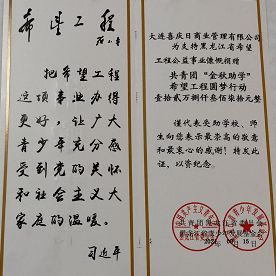 希望工程
把希望工程
这项事业办得
更好，让广大
青少年充分感
受到党的关怀
和社会主义大
家庭的温暖。
习近平
大连喜庆日商业管理有限公司
为支持黑龙江省希望
工程公益事业慷慨捐赠
共青团“金秋助学”
希望工程圆梦行动
壹拾贰万捌仟叁佰柒拾元整
谨代表受助学校、师
生向您表示最崇高的敬意
和最衷心的感谢！特发此
证，以资纪念。